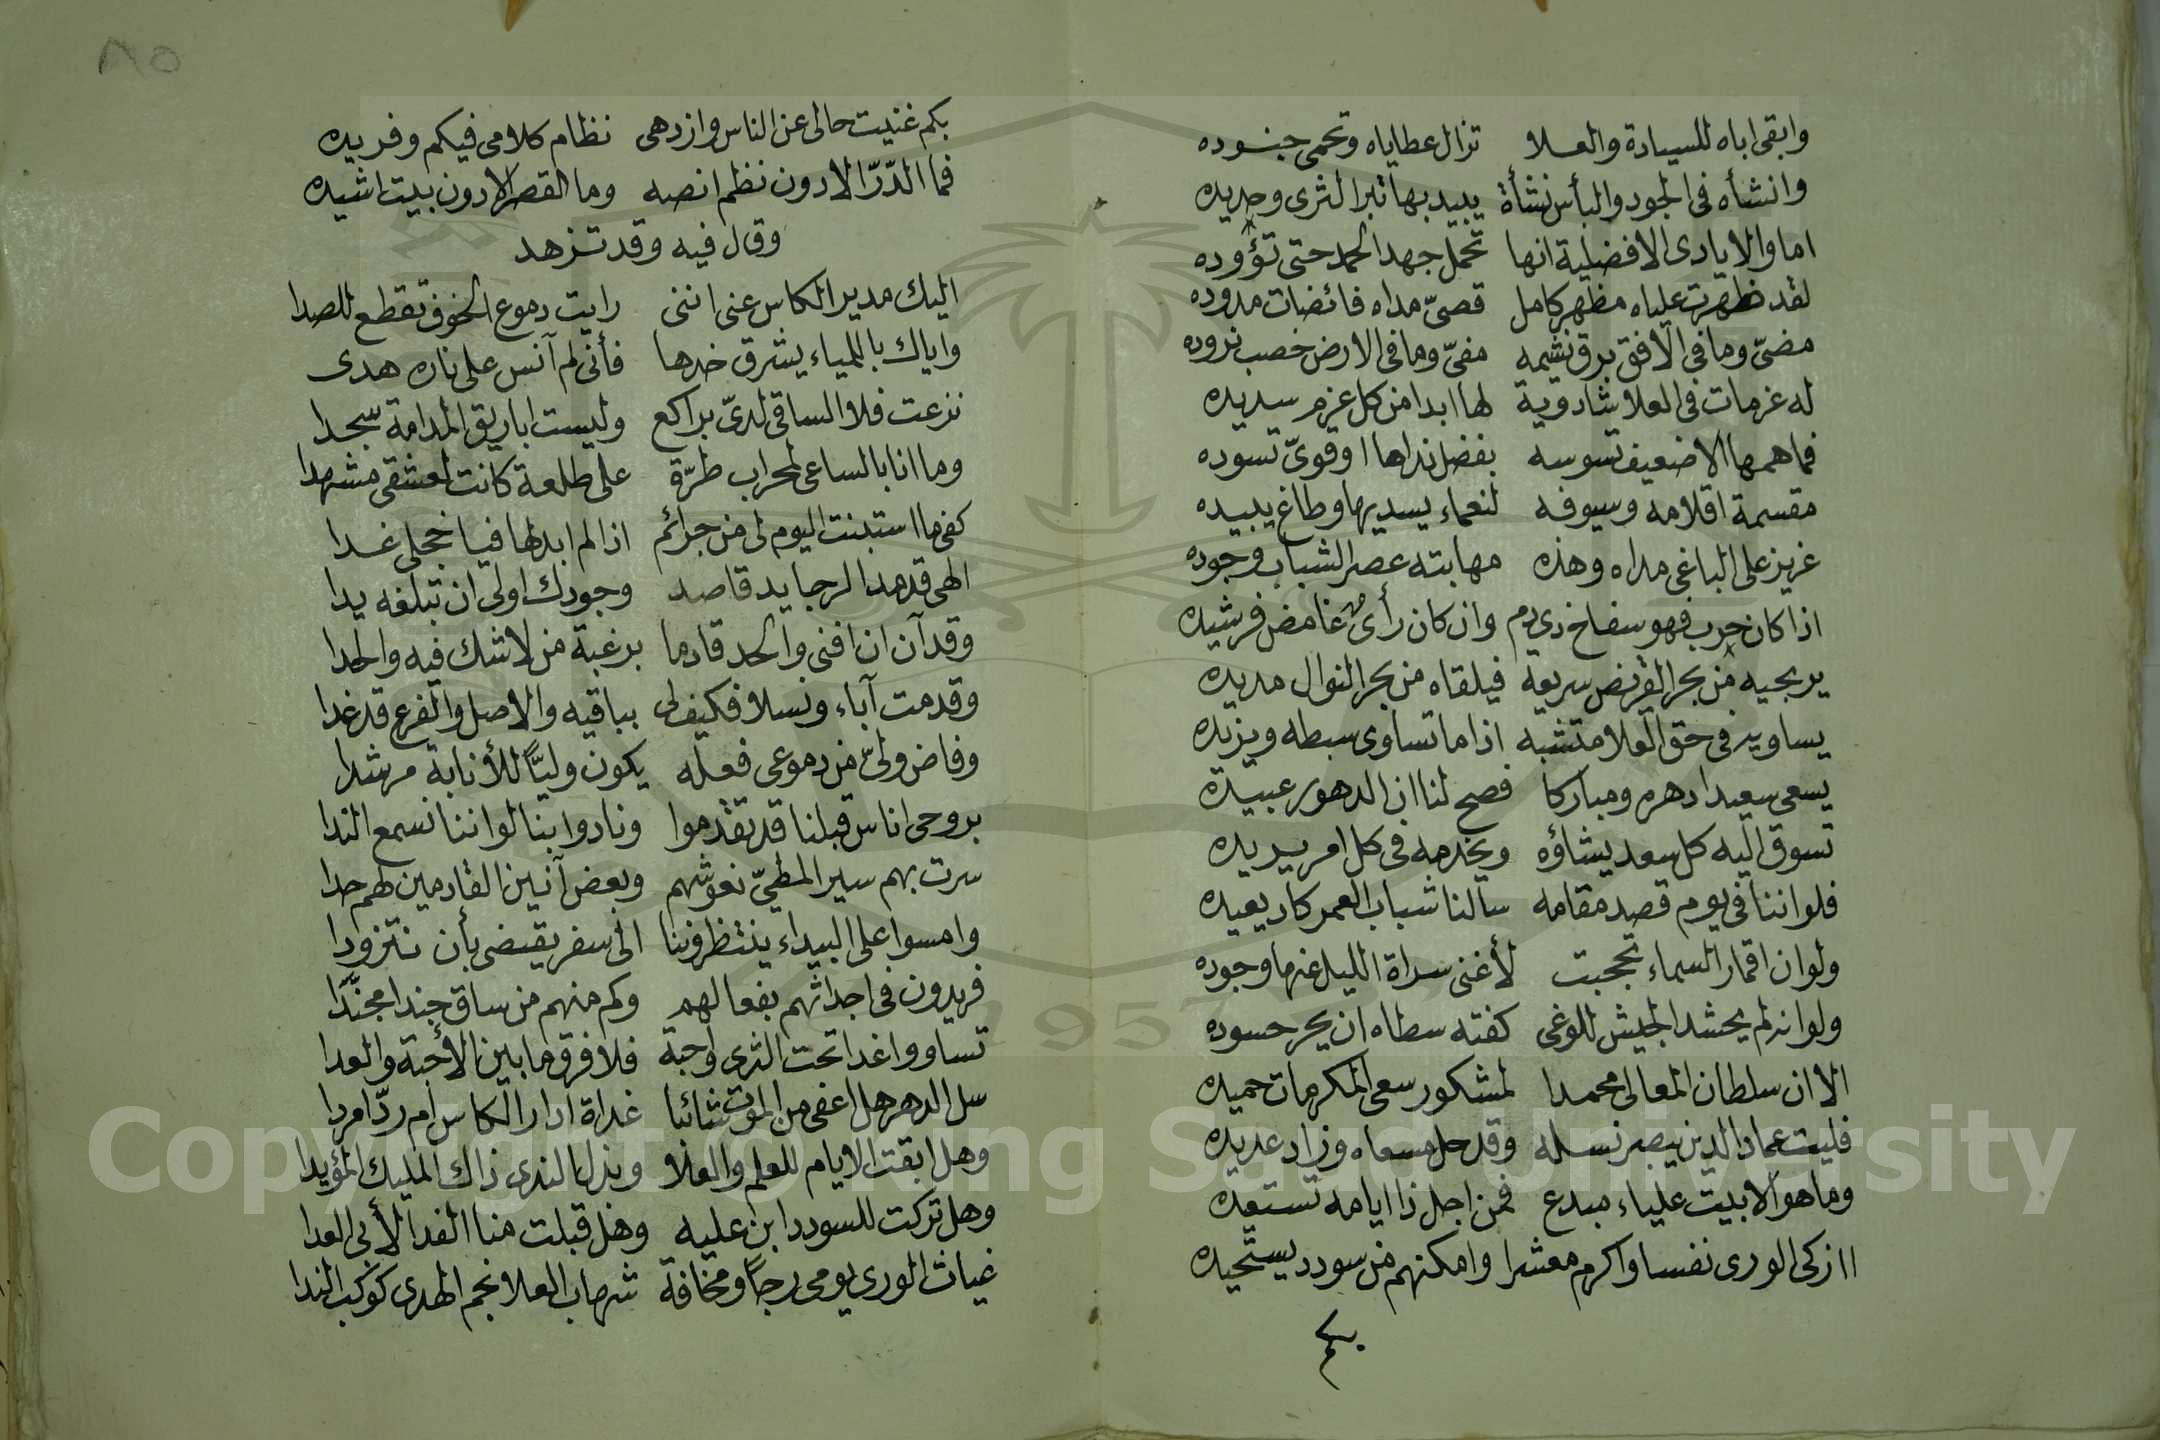 وابقى اباه للسيادة والعلا تزال عطاياه وتحمى جنوده
وانشأه فى الجود والبأس نشأة يبيد بها تبر الثرى وحديده
اما والايادى الافضلية انها تحمل جهد الحمد حتى تؤوده
لقد ظهرت علياه مظهر كامل قصىّ مداه فائضات مدوده
مضىّ وما فى الافق برق نشيمه مفىّ وما فى الارض خصب نروده
له عزمات فى العلا شادوية لها ابدا من كل عزم سديده
فما همها الا ضعيف تسوسه بفضل نداها او قوىّ تسوده
مقسمة اقلامه وسيوفه لنعماء يسديها وطاغ يبيده
عزيز على الباغى مداه وهذه مهابته عصر الشباب وجوده
اذا كان حرب فهو سفاخ ذى دم وان كان رأى غامض فرشيده
يربجيه من بحر القريض سريعة فيلقاه من بحر النوال مديده
يساويه فى حق العلا متشبه اذا ما تساوى سبطه ويزيده
يسعى سعيدا دهره ومباركا فصح لنا ان الدهور عبيده
تسوق اليه كل سعد يشاؤه ويخدمه فى كل امر يريده
فلو اننا فى يوم قصد مقامه سالنا شباب العمر كاد يعيده
ولو ان اقمار السماء تحجبت لأغنى سراة الليل عنها وجوده
ولو انه لم يحشد الجيش للوغى كفته سطاه ان يحر حسوده
الا ان سلطان المعالى محمدا لمشكور سعى المكرمات حميده
فليت عماد الدين يبصر نسله وقد حل مسعاه وزاد عديده
وما هو الا بيت علياء مبدع فمن اجل ذا ايامه تستعيده
اازكى الورى نفسا واكرم معشرا وامكنهم من سودد يستجيده
بكم
٨٥
بكم غنيت حالى عن الناس وازدهى نظام كلامى فيكم وفريده
فما الدّرّ الا دون نظم انصه وما القصر الا دون بيت اشيده
وقال فيه وقد تزهد
اليك مدير الكاس عنى اننى رايت دموع الخوف تقطع للصدا
واياك باللمياء يشرق خدها فأنى لم آنس على ناره هدى
نزعت فلا الساقى لدىّ براكع وليست اباريق المدامة سجدا
وما انا بالساعى لمحراب طرّة على طلعة كانت لعشقى مشهدا
كفى ما استبنت اليوم لى من جرائم اذا لم ابدلها فيا خجلى غدا
الهى قد مد الرجا يد قاصد وجودك اولى ان تبلغه يدا
وقد آن ان افنى والحد قادما برغبة من لا شك فيه والحدا
وقد مت آباء ونسلا فكيف لى بباقيه والاصل والفرع قد غدا
وفاض ولىّ من دموعى فعله يكون وليًّا للأنابة مرشدا
بروحى اناس قبلنا قد تقدموا ونادوا بنا لو اننا نسمع الندا
سرت بهم سير المطىّ نعوشهم وبعض آنين القادمين لهم حدا
وامسوا على البيداء ينتظروننا الى سفر يقضى بأن نتزودا
فريدون فى اجداثهم بفعالهم وكم منهم من ساق جندا مجنّدا
تساووا غدا تحت الثرى واحبة فلا فرق ما بين الأحبة والعدا
سل الدهر هل اعفى من الموت شائبا غداة ادار الكاس ام ردّ امردا
وهل ابقت الايام للعلم والعلا وبذل الندى ذاك المليك المؤيدا
وهل تركت للسودد ابن عليه وهل قبلت منا الفدا لأبى الفدا
غياث الورى يومى رجاً ومخافة شهاب العلا نجم الهدى كوكب الندا